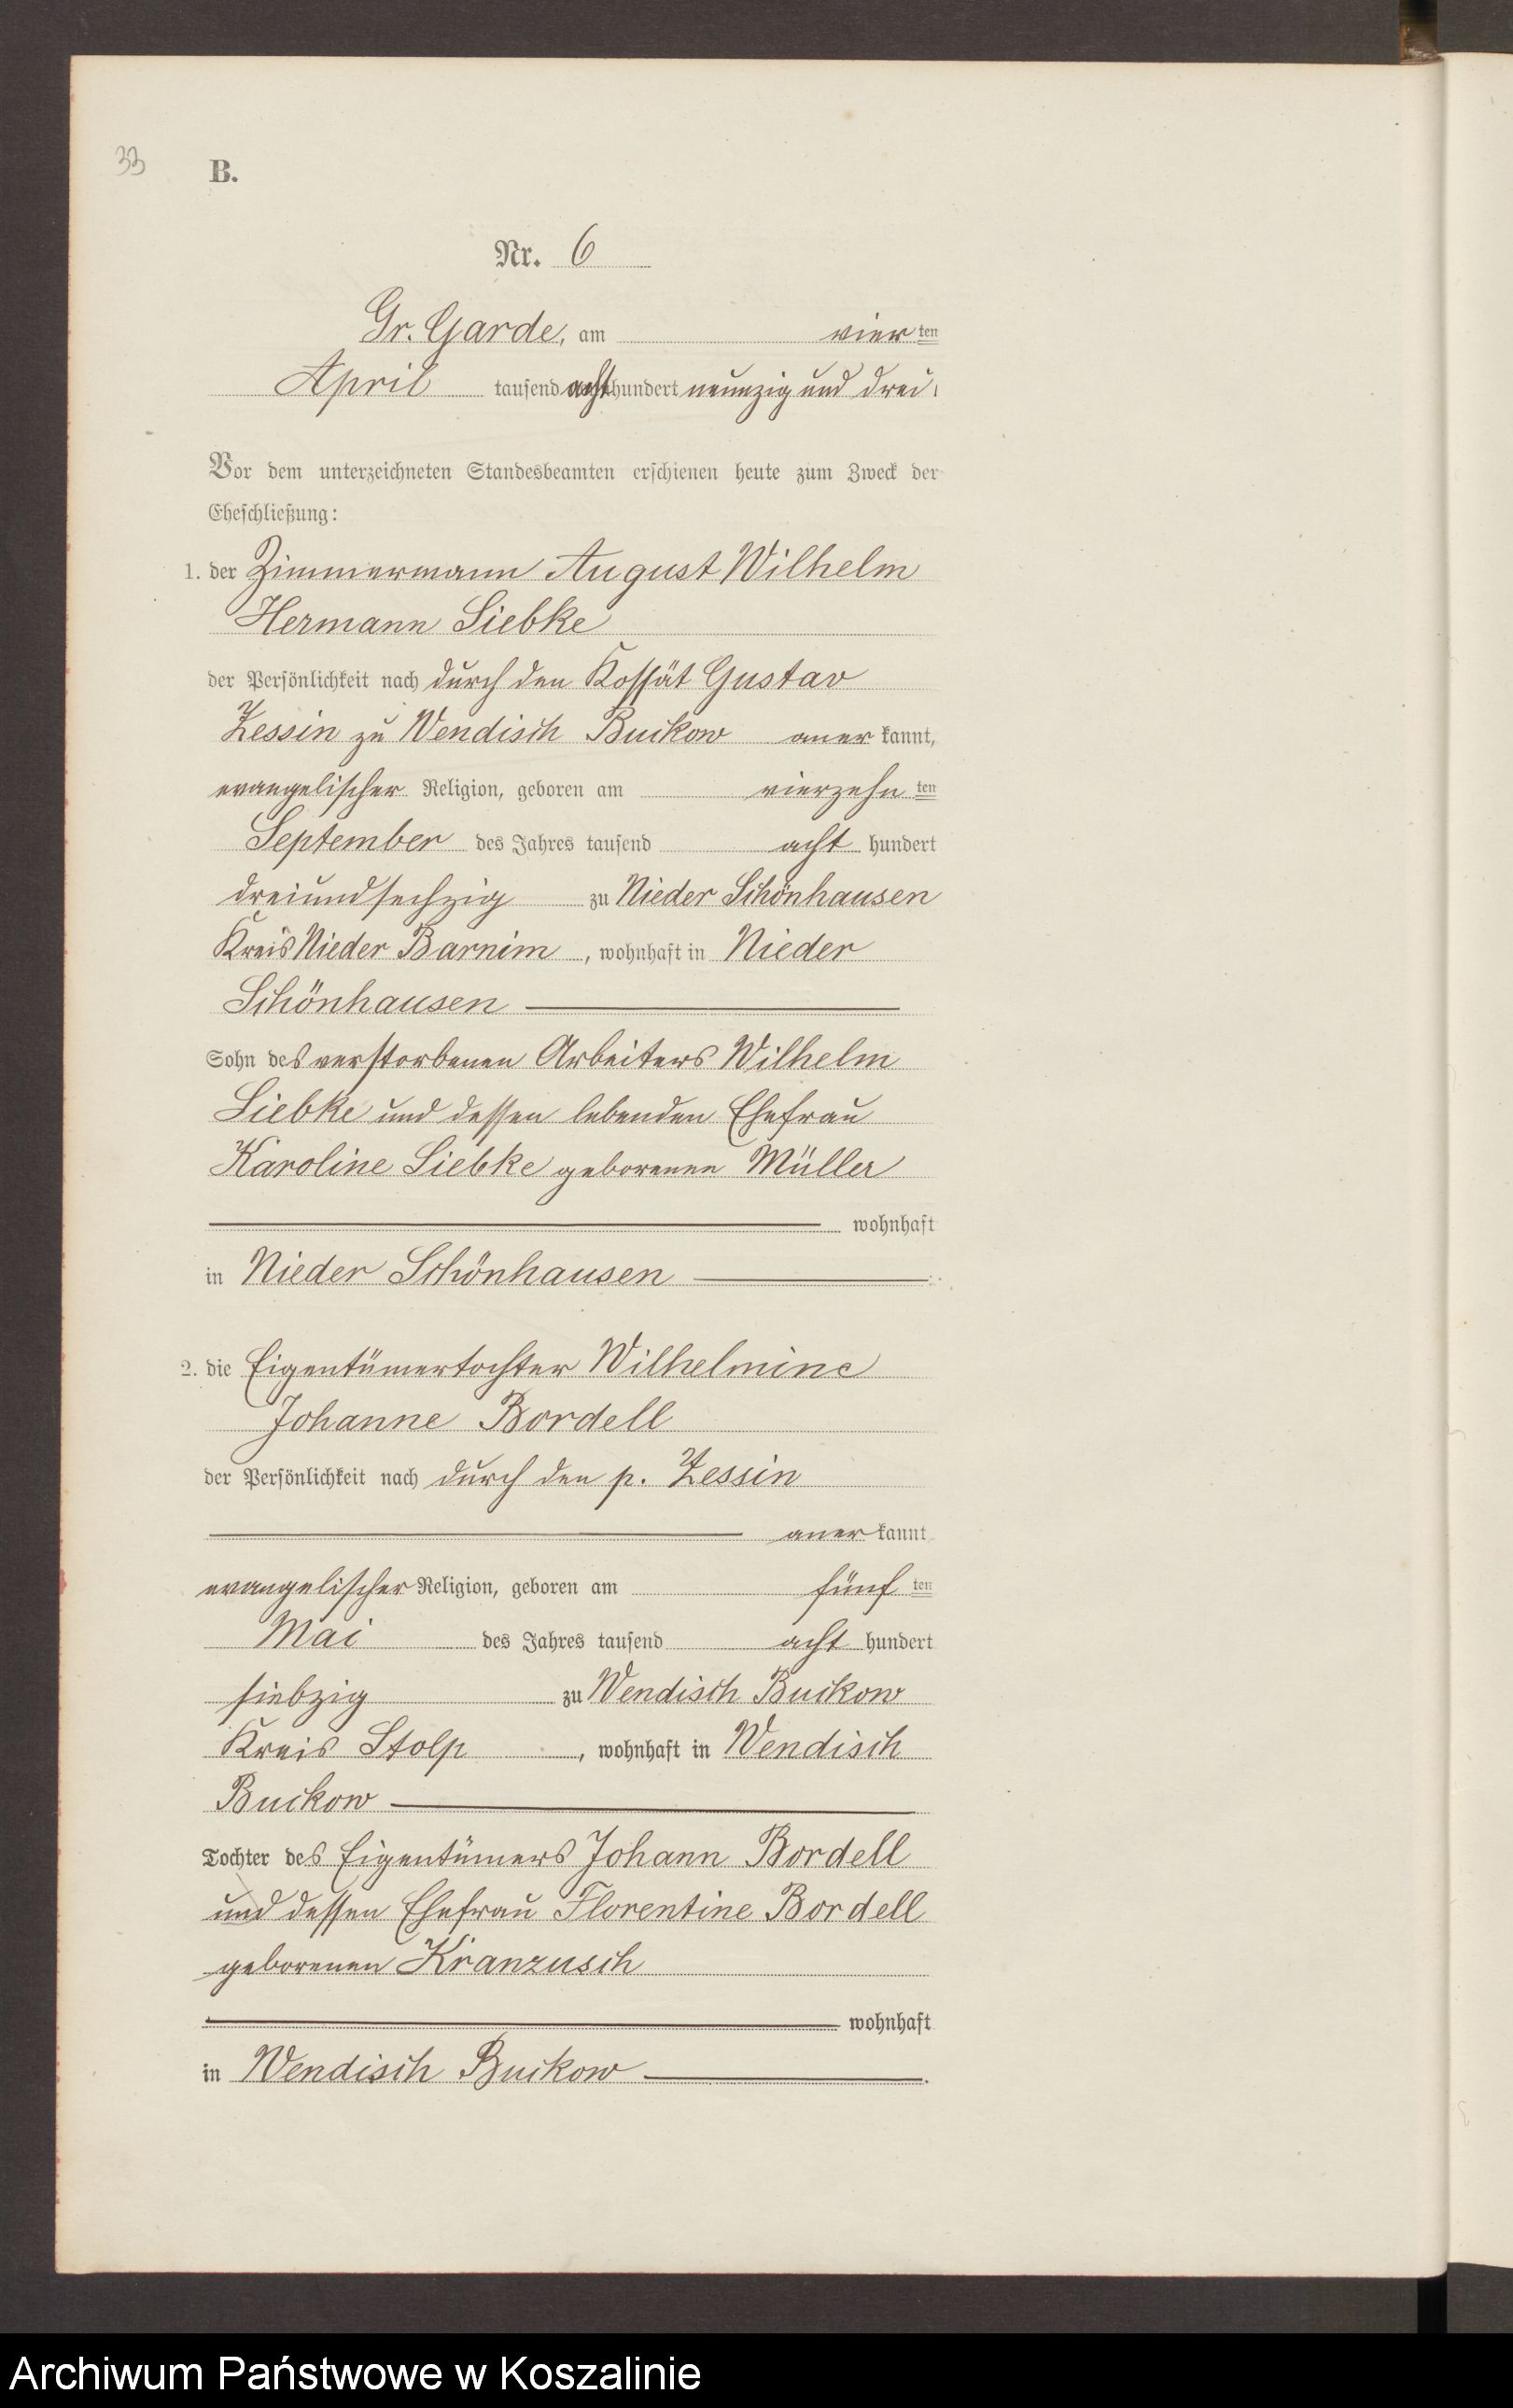 33
B.
Nr. 6
Gr. Garde, am vier ten
April tausend acht hundert neunzig und drei.
Vor dem unterzeichneten Standesbeamten erschienen heute zum Zweck der
Eheschließung:
1. der Zimmermann August Wilhelm
Hermann Liebke
der Persönlichkeit nach durch den Kossät Gustav
Zessin zu Wendisch Buckow aner kannt,
evangelischer Religion, geboren am vierzehn ten
September des Jahres tausend acht hundert
dreiundsechzig zu Nieder Schönhausen
Kreis Nieder Barnim, wohnhaft in Nieder
Schönhausen
Sohn des verstorbenen Arbeiters Wilhelm
Liebke und dessen lebenden Ehefrau
Karoline Liebke geborenen Müller
wohnhaft
in Nieder Schönhausen
2. die Eigentümertochter Wilhelmine
Johanne Bordell
der Persönlichkeit nach durch den p. Zessin
aner kannt
evangelischer Religion, geboren am fünf ten
Mai des Jahres tausend acht hundert
siebzig zu Wendisch Buckow
Kreis Stolp, wohnhaft in Wendisch
Buckow
Tochter des Eigentümers Johann Bordell
und dessen Ehefrau Florentine Bordell
geborenen Kranzusch
wohnhaft
in Wendisch Buckow.
Archiwum Państwowe w Koszalinie